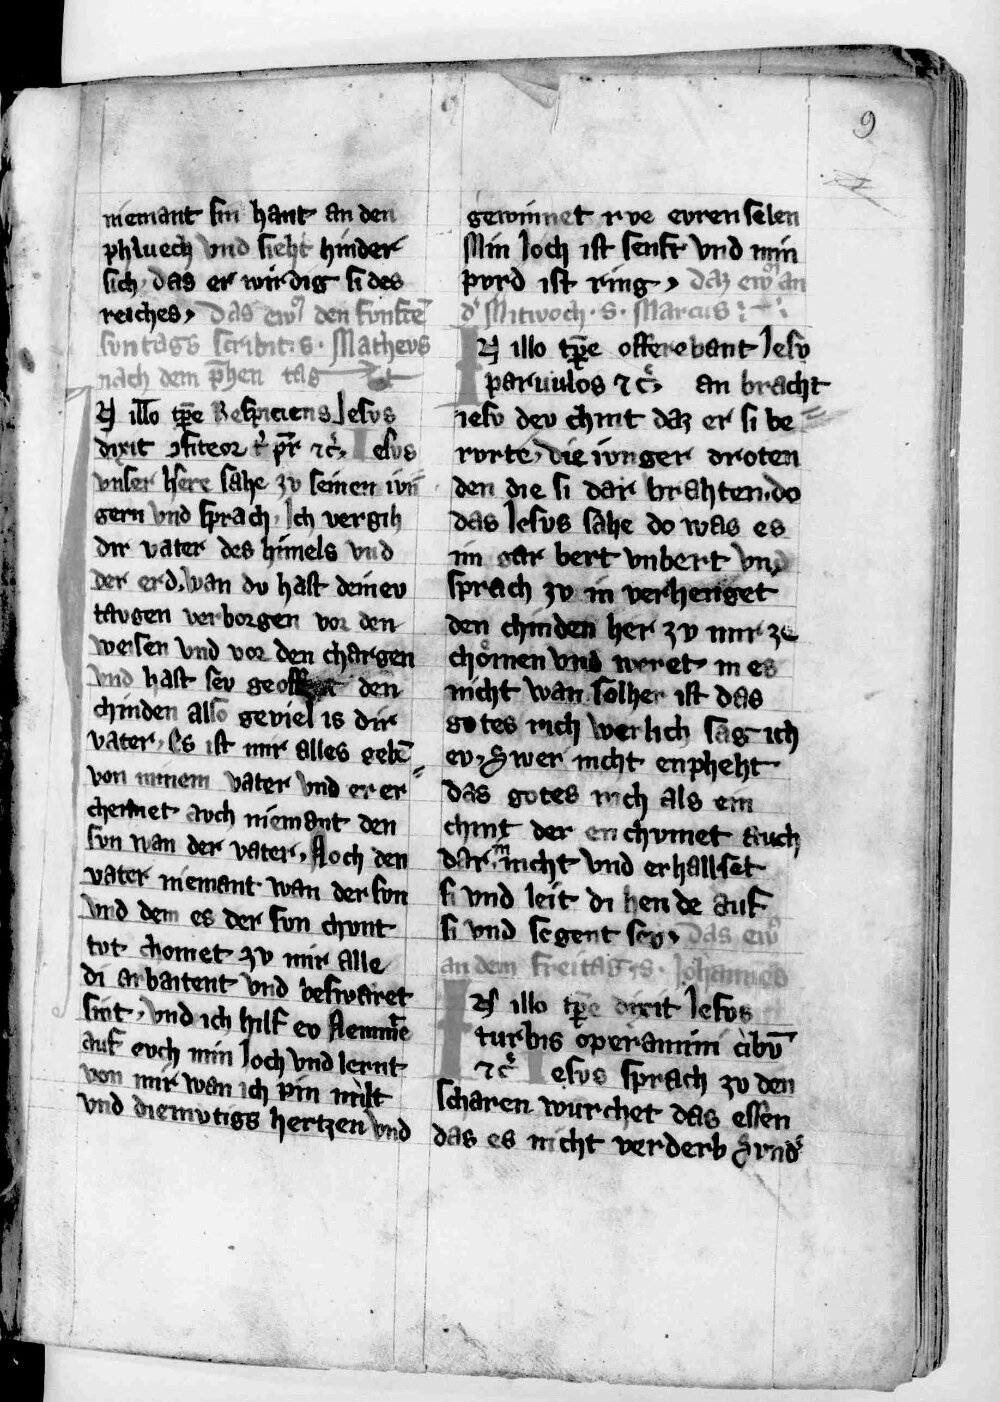 9
niemant sin hant an den
phluech vnd sieht hinder
sich, das er wirdig si des
reiches, Das ewꝰ den funftē
suntags scribit. s. Matheus
nach dem p̄hen tag
N illo tp̄e Respiciens Jesus
dixit ꝯfiteor t' pr̄ ⁊c̄. Jesus
vnser here sahe zv seinen iun
gern vnd sprach, Ich vergih
dir vater des himels vnd
der erd, wan dv hast deinev
tavgen verborgen vor den
weisen vnd vor den chargen
vnd hast sev geoffent den
chinden also geviel is dir
vater, Es ist mir alles gebē
von minem vater vnd er er
chennet avch niemant den
svn wan der vater, Noch den
vater niemant wan der svn
vnd dem es der svn chvnt
tvt chomet zv mir alle
di arbaitent vnd beswaret
sint, vnd ich hilf ev Nemme
auf evch min Joch vnd lernt
von mir wan ich pin milt
vnd diemvtigs hertzen vnd
gewinnet rve evren selen
Min Joch ist senft vnd min
pvrd ist ring, Daz ewꝰ an
d' Mitwoch. s. Marcus
IN illo tp̄e offerebant Jesv
paruulos ⁊c̄ an bracht
iesv dev chint daz er si be
rvrte, die ivnger droten
den die si dar brahten, do
das Jesvs sahe do was es
im gar bert vnbert vnd
sprach zv in verhenget
den chinden her zv mir ze
chomen vnd weret in es
nicht wan solher ist das
gotes rich werlich sag ich
ev, Swer nicht enpheht
das gotes rich als ein
chint der en chvmet auch
dar in nicht vnd er hallset
si vnd leit di hende auf
si vnd segent sev, Das ewꝰ
an dem freitag. s. Johannes
IN illo tp̄e dixit Jesvs
turbis operamini cibū
⁊c̄ Jesvs sprach zv den
scharen wurchet das essen
das es nicht verderb Svnd'